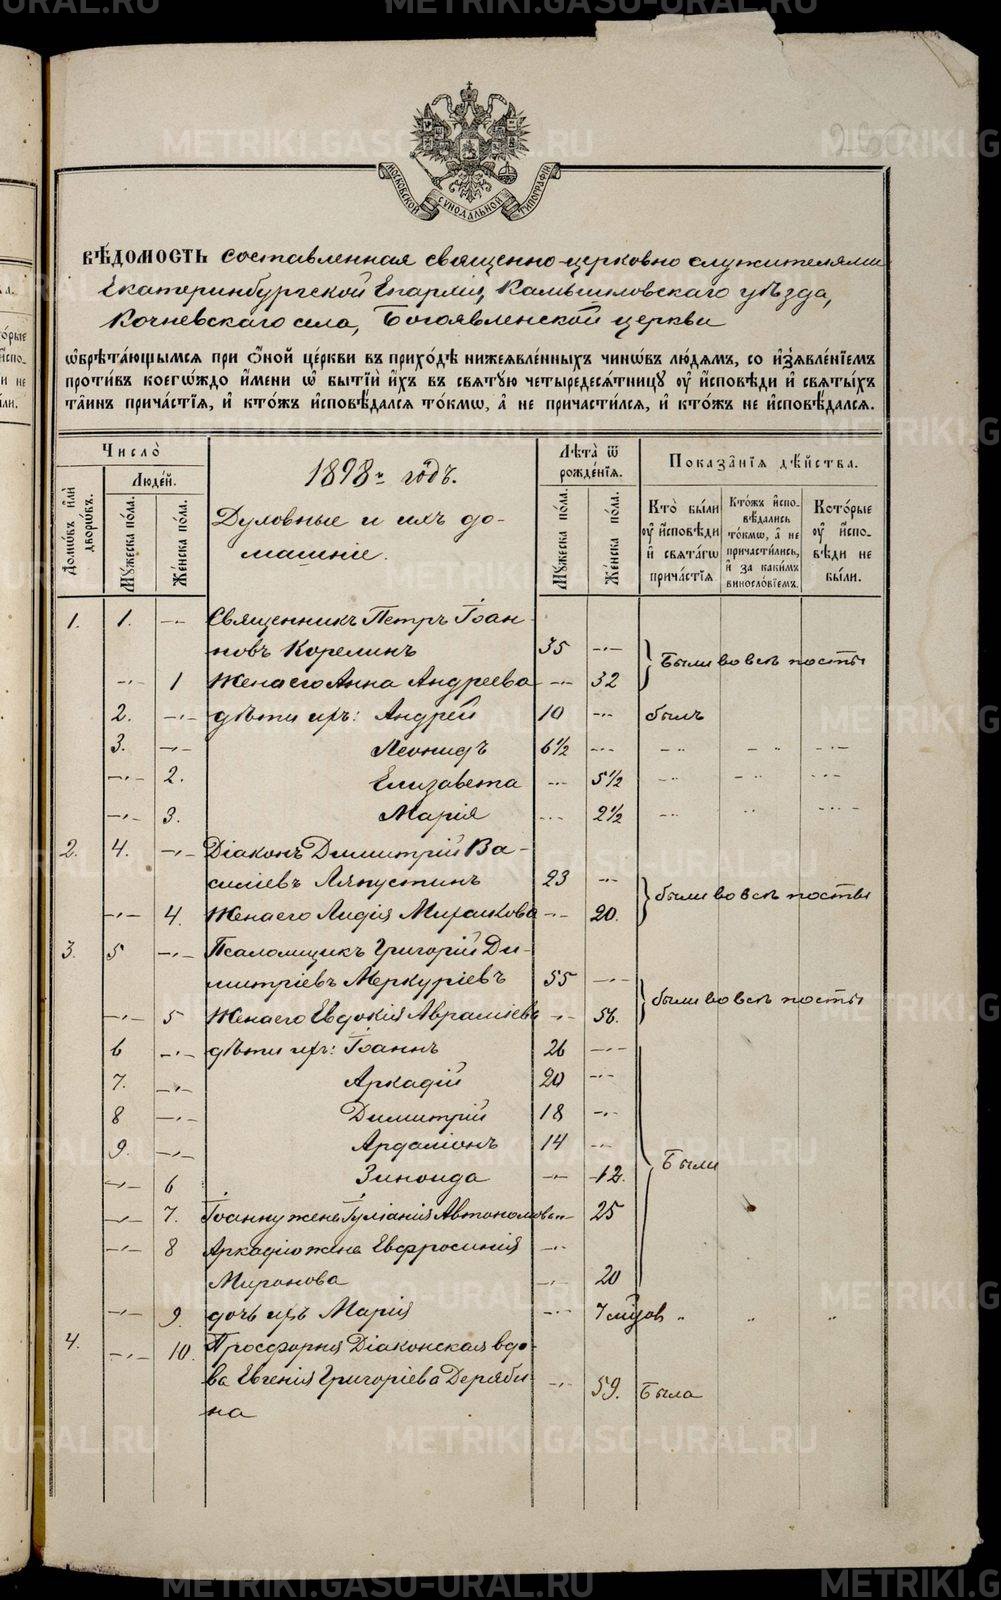 METRIKI.GASO-URAL.RU
МОСКОВСКОЙ СѴНОДАЛЬНОЙ ТИПОГРАФІИ
ВѢДОМОСТЬ составленная священно-церковно служителями
Екатеринбургской Епархіи, Камышловскаго уѣзда,
Кочневскаго села, Богоявленской церкви
ѡбрѣта́ющымся при ѻ҆́ной це́ркви въ прихо́дѣ нижеявле́нныхъ чинѡ́въ лю́демъ, со и҆з̾явле́нїемъ
проти́въ коегѡ́ждо и҆́мени ѡ҆ бытїѝ и҆́хъ въ святу́ю четыредеся́тницу ѹ҆ и҆́споведи и҆ святы́хъ
та́инъ прича́стїя, и҆ кто́жъ и҆сповѣ́дался то́кмѡ, а҆ не причасти́лся, и҆ кто́жъ не и҆сповѣ́дался.
Число̀
Люде́й.
Домѡ́въ и҆лѝ дворѡ́въ.
Му́жеска по́ла.
Же́нска по́ла.
1898 годъ.
Духовные и ихъ до-
машніе.
Лѣта̀ ѿ рожде́нїя.
Му́жеска по́ла.
Же́нска по́ла.
Показа̑нїя дѣ́йства.
Кто̀ бы́ли ѹ҆ и҆́споведи и҆ свята́гѡ прича́стїя
Кто́жъ и҆спо-
вѣ́дались то́кмѡ, а҆ не причасти́лись, и҆ за каки́мъ винослѡ́вїемъ.
Кото́рые ѹ҆ и҆́спо-
вѣди не бы́ли.
1. 1. -"- Священникъ Петръ Іоан-
новъ Корелинъ 35 -"-
-"- 1 Жена его Анна Андреева -"- 32 Были во всѣ посты
2. -"- дѣти ихъ: Андрей 10 -"- былъ
3. -"- Леонидъ 6½ -"- -"- -"- -"-
-"- 2. Елизавета -"- 5½ -"- -"- -"-
-"- 3. Марія -"- 2½ -"- -"- -"-
2. 4. -"- Діаконъ Димитрій Ва-
силіевъ Ляпустинъ 23 -"-
-"- 4. Жена его Лидія Михаилова -"- 20. были во всѣ посты
3. 5 -"- Псаломщикъ Григорій Ди-
митріевъ Меркуріевъ 55 -"-
-"- 5 Жена его Евдокія Аврамієва -"- 56. были во всѣ посты
6 -"- дѣти ихъ: Іоаннъ 26 -"-
7. -"- Аркадій 20 -"-
8 -"- Димитрій 18 -"-
9. -"- Ардаліонъ 14 -"-
-"- 6 Зиноида -"- 12. Были
-"- 7. Іоанну жена Іуліанія Автономова -"- 25
-"- 8 Аркадію жена Евфросинія -"-
Миронова -"- 20
-"- 9. дочь ихъ Марія -"- 7 " " "
4. -"- 10. Просфорня Діаконская вдо-
ва Евгенія Григоріева Деряби- -"- 59. Была
на